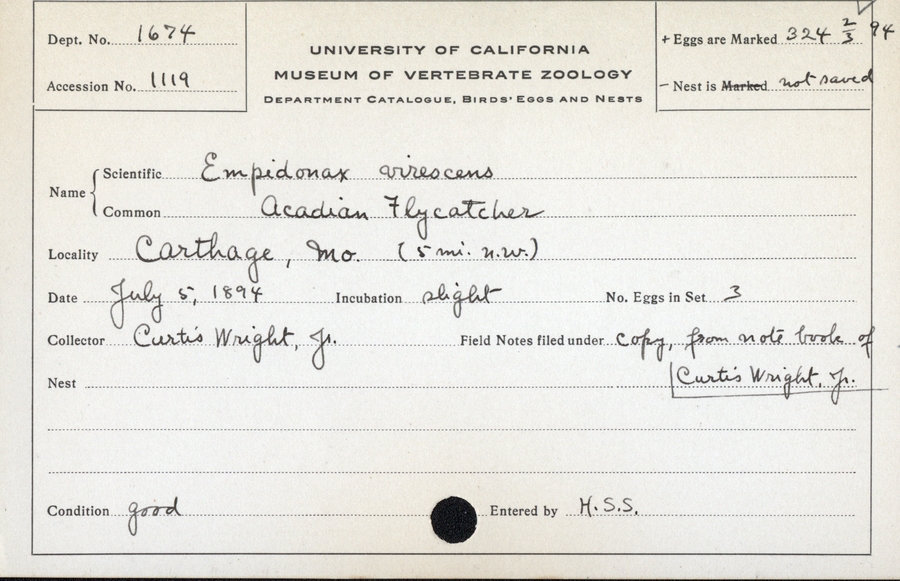 Dept. No. 1674
Accession No. 1119
UNIVERSITY OF CALIFORNIA
MUSEUM OF VERTEBRATE ZOOLOGY
DEPARTMENT CATALOGUE, BIRDS' EGGS AND NESTS
+ Eggs are Marked 324 2/3 94
- Nest is Marked not saved
Name
Scientific Empidonax virescens
Common Acadian Flycatcher
Locality Carthage, Mo. (5 mi. n.w.)
Date July 5, 1894 Incubation slight No. Eggs in Set 3
Collector Curtis Wright, Jr. Field Notes filed under copy, from note book of
Nest Curtis Wright, Jr.
Condition good Entered by H.S.S.